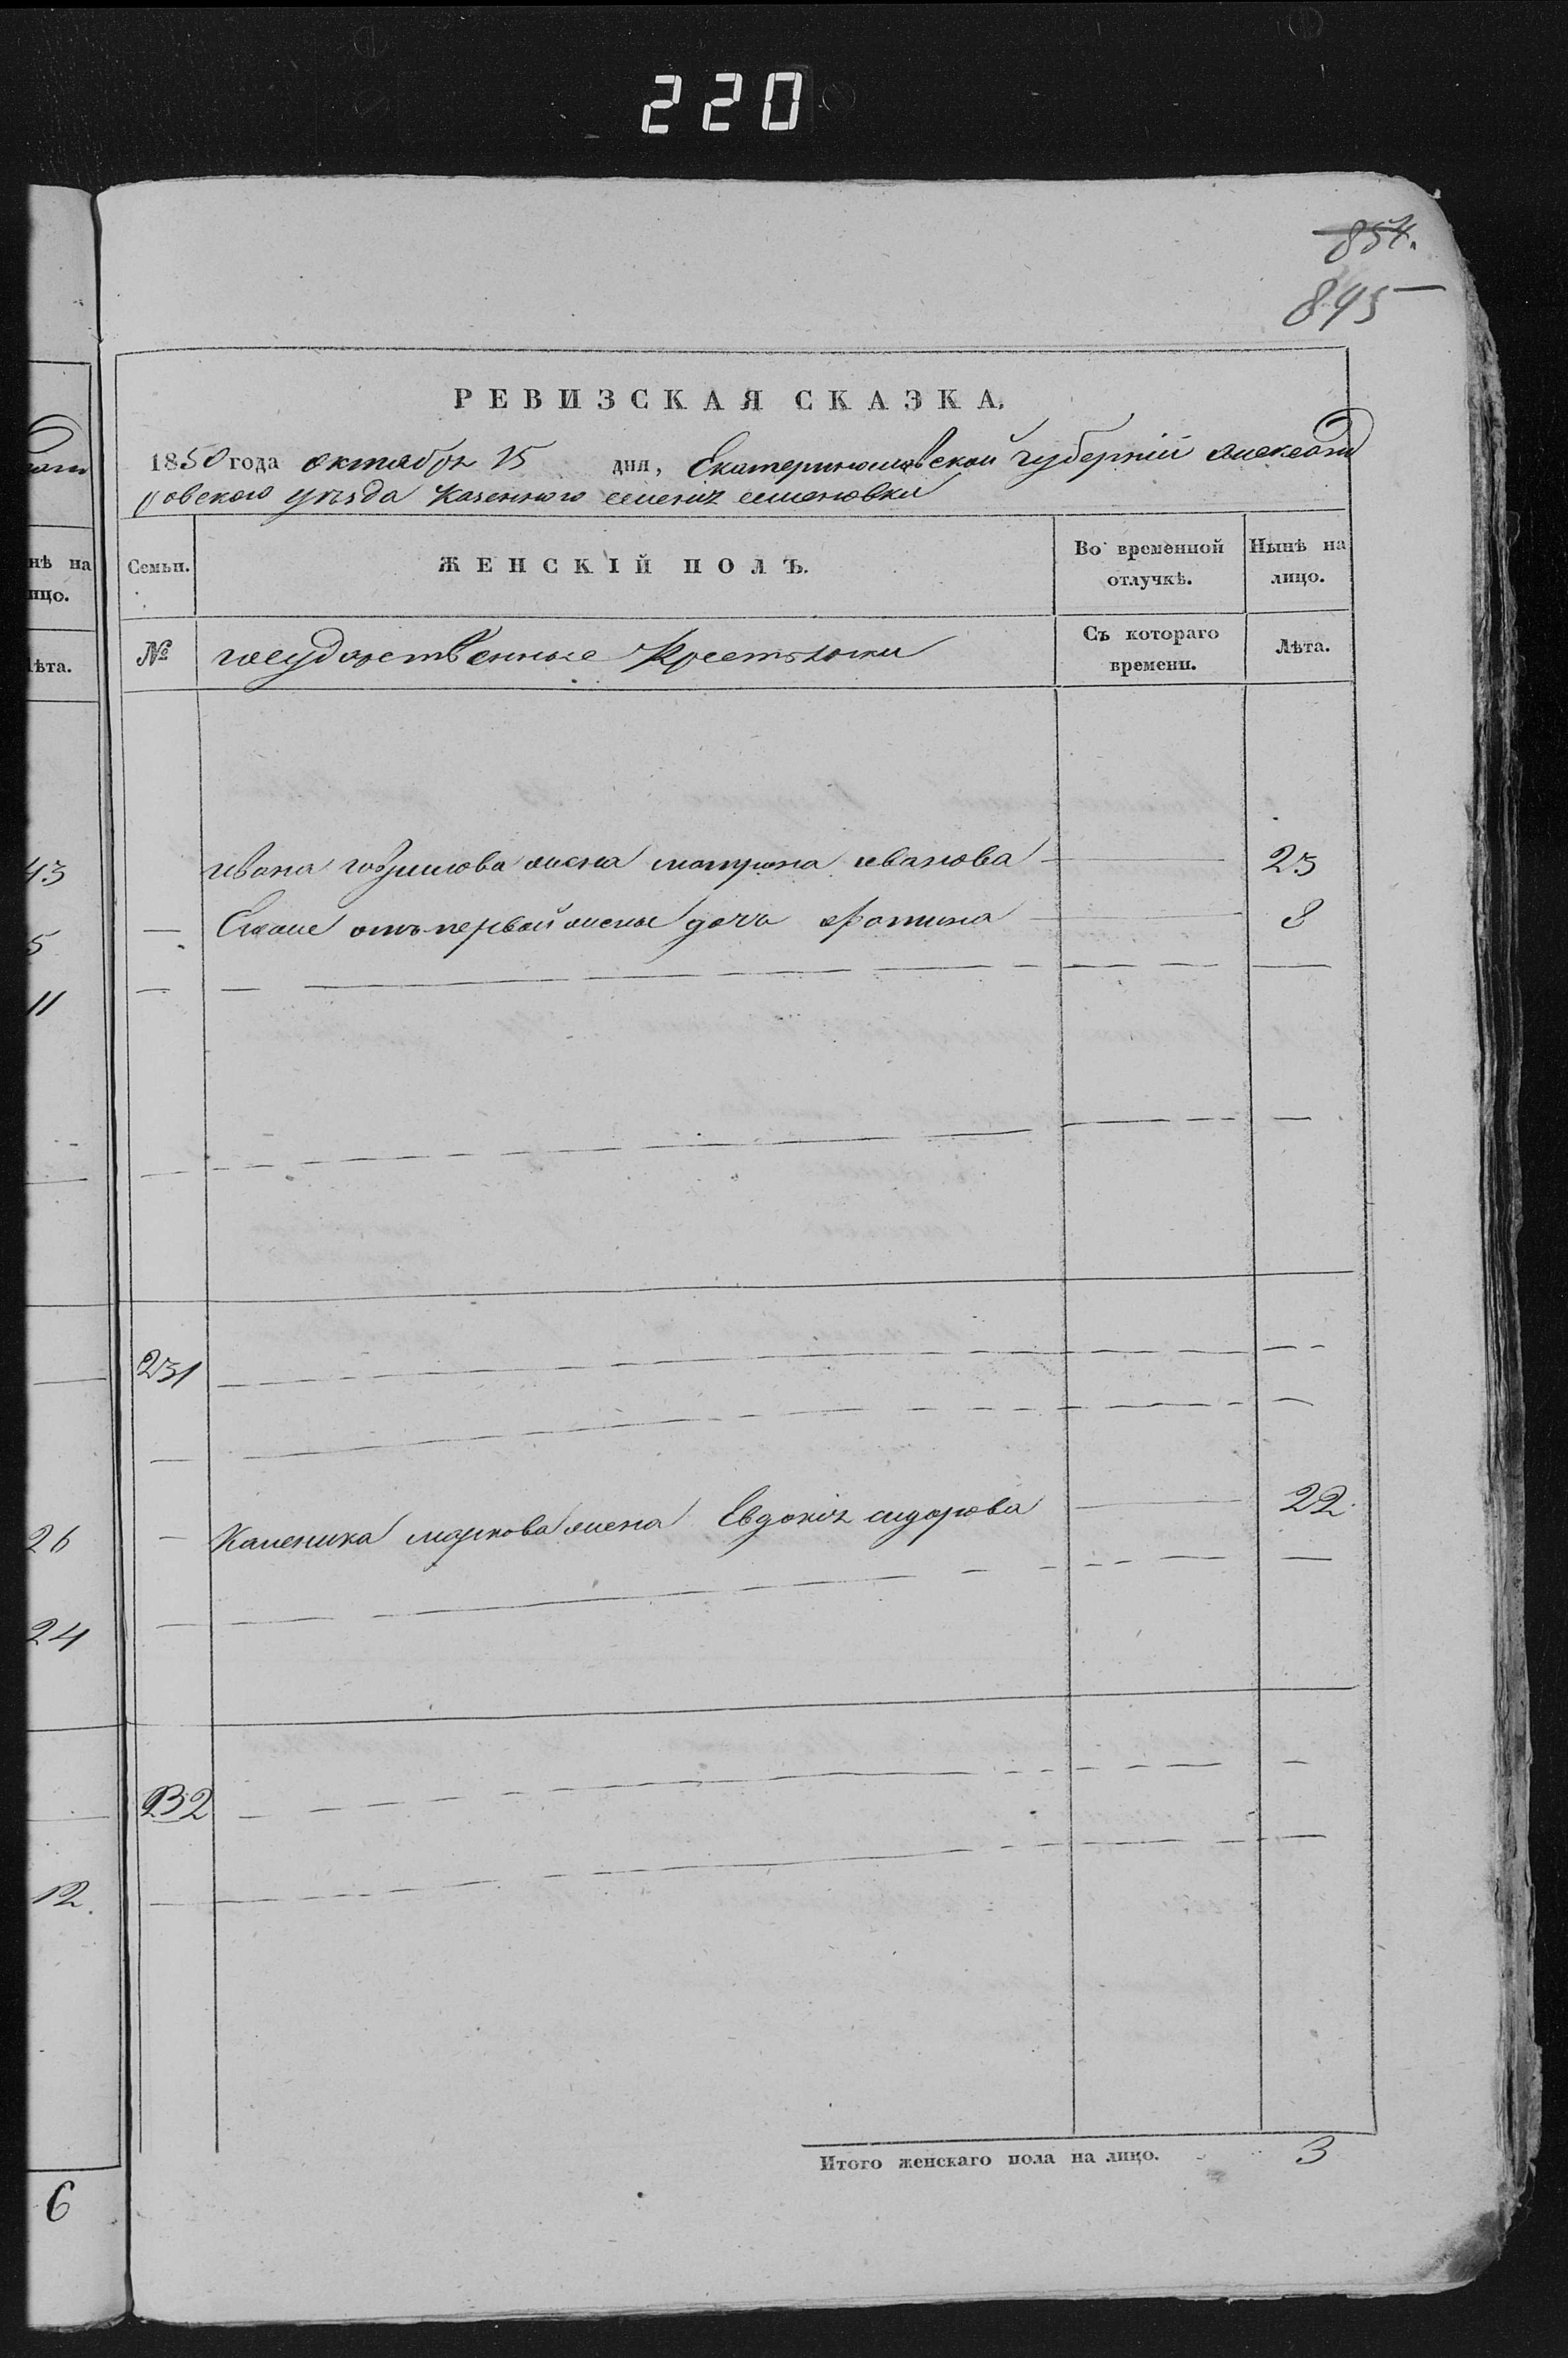 220
854.
845
РЕВИЗСКАЯ СКАЗКА.
1850 года октября 15 дня, Екатеринославской губерніи Александ
ровского уезда казенного селения семеновки
Семьи.
ЖЕНСКІЙ ПОЛЪ.
Во временной отлучкѣ.
Нынѣ на лицо.
№
государственные крестьянки
Съ котораго времени.
Лѣта.
Ивана жена матрона иванова 23
Его же отъ первой жены дочь Фотина 8
231
Каленика маркова жена Евдокия сидорова 22
232
Итого женскаго пола на лицо. 3
нѣ на
ицо.
ѣта.
43
5
11
26
24
12.
6